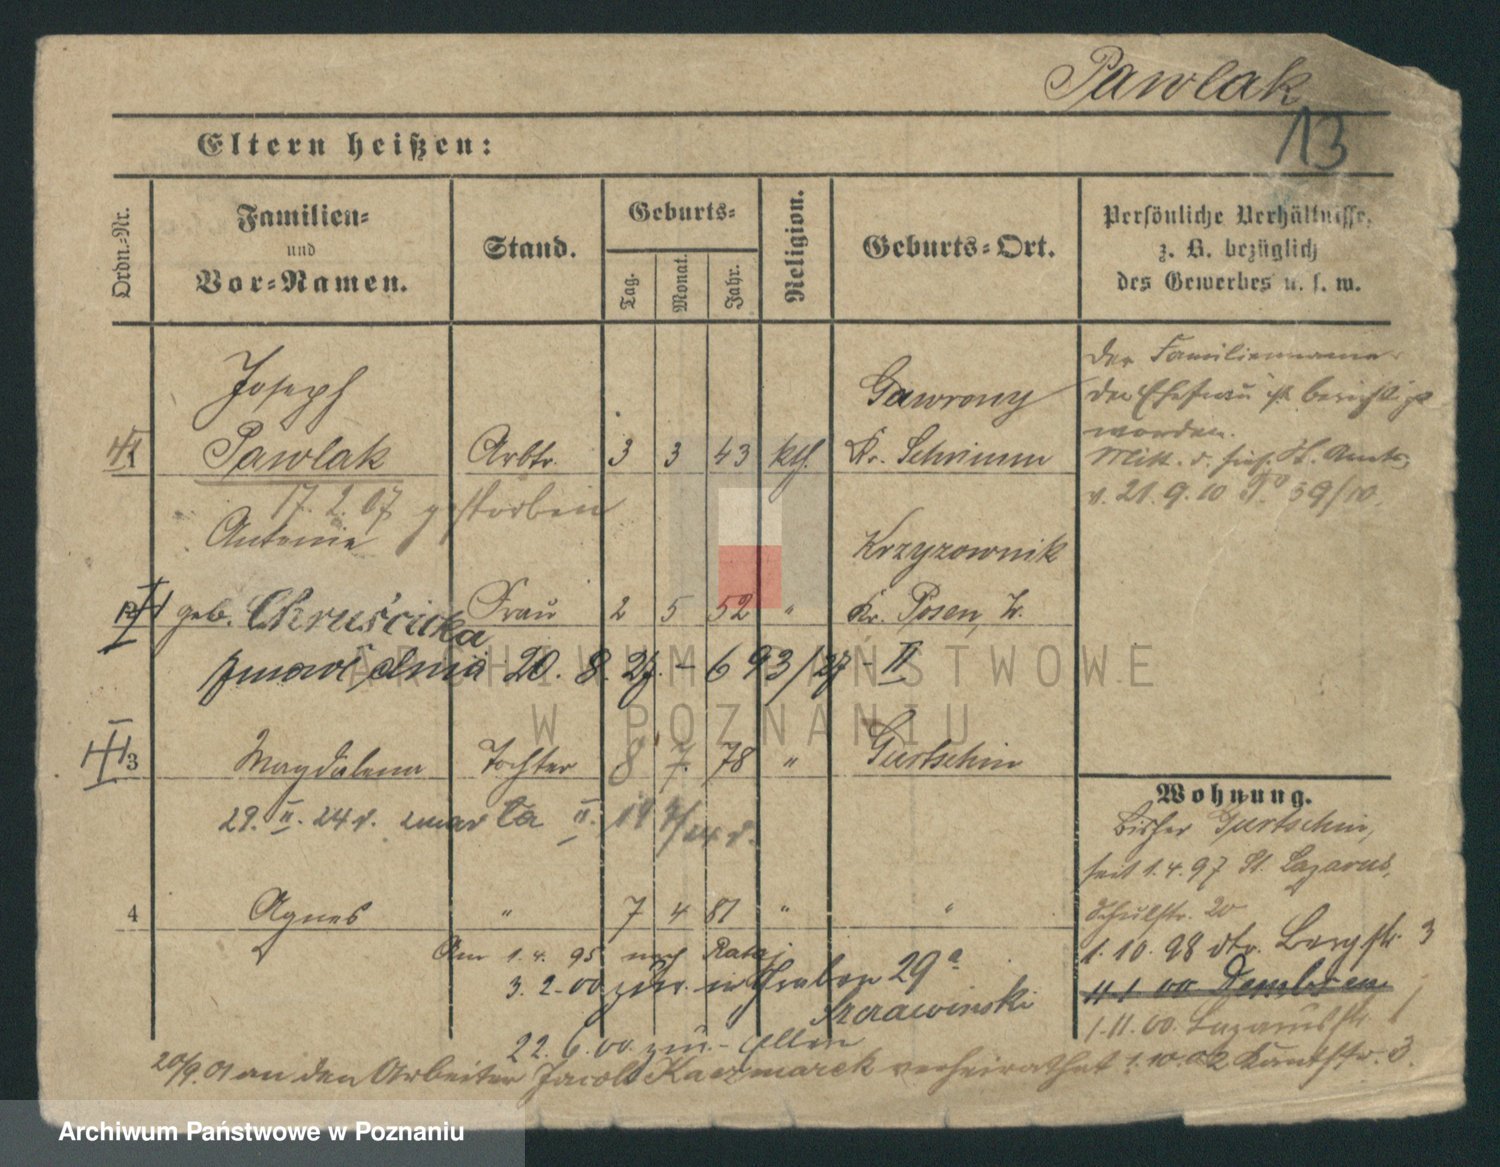 Pawlak
13
Eltern heißen:
Ordn.-Nr.
Familien-
und
Vor-Namen.
Stand.
Geburts-
Tag.
Monat.
Jahr.
Religion.
Geburts-Ort.
Persönliche Verhältnisse,
z. B. bezüglich
des Gewerbes u. s. w.
Joseph
Pawlak Arbtr. 3 3 43 kth.
Gawrony
Kr. Schrimm
17. 2. 07 gestorben
Der Familienname
der Ehefrau ist berichtigt
worden.
v. 21. 9. 10 59/10.
Antonie
geb. Chruścicka Frau 2 5 52 "
Krzyzownik
Kr. Posen, W.
dnia 20. 8. 27. - 693/27 - II
3 Magdalena Tochter 8 7. 78 " Gurtschin
29. II. 24 r. zmarła II.
4 Agnes " 7 4 81 " "
Am 1. 4. 95 nach Rataj
3. 2. 00 zur. in 29a
22. 6. 00 zur. - Eltern
20/9. 01 an den Arbeiter Jacob Kaczmarek verheirathet
Wohnung.
Bisher Gurtschin,
seit 1. 4. 97 St. Lazarus,
Schulstr. 20
1. 10. 98 dto. Bergstr. 3
1. 11. 00. Lazarusstr. 1
1. 10. 02 Kantstr. 3.
ARCHIWUM PAŃSTWOWE
W POZNANIU
Archiwum Państwowe w Poznaniu